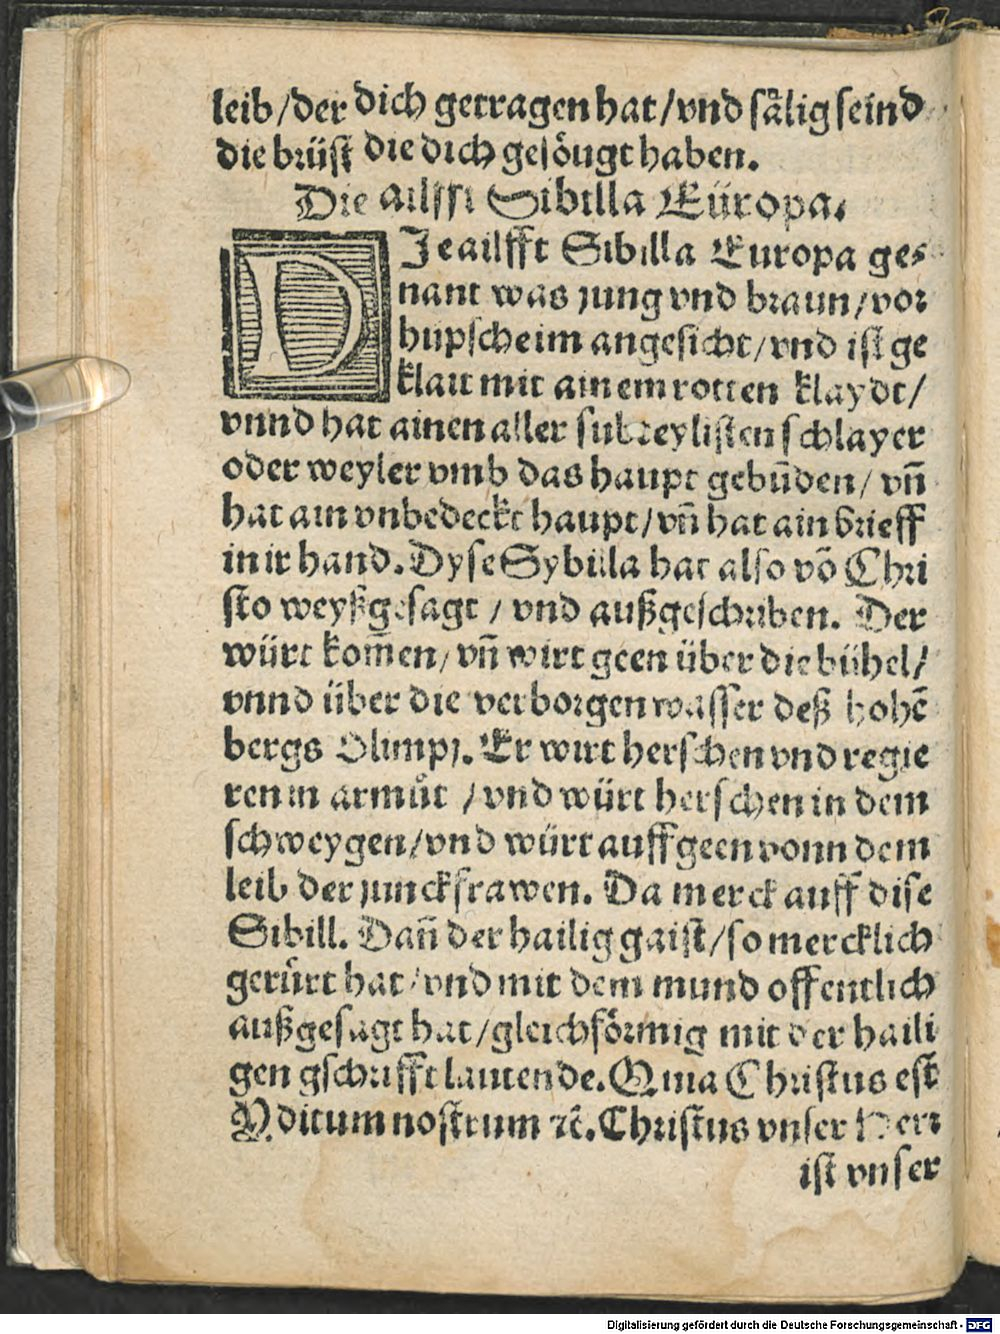 leib/der dich getragen hat/vnd sålig seind
die brüst die dich gesöugt haben.
Die ailfft Sibilla Eüropa.
DJe ailfft Sibilla Europa ge⸗
nant was jung vnd braun/vor
hüpscheim angesicht/vnd ist ge
klait mit ainem rotten klaydt/
vnnd hat ainen aller subteylisten schlayer
oder weyler vmb das haupt gebūden/ vñ
hat ain vnbedeckt haupt/vñ hat ain brieff
in ir hand. Dyse Sybilla hat also võ Chri
sto weyßgesagt / vnd außgeschriben. Der
würt kom̃en/ vñ wirt geen über die bühel/
vnnd über die verborgen wasser deß hohē
bergs Olimpj. Er wirt herschen vnd regie
ren in armůt /vnd würt herschen in dem
schweygen/vnd würt auffgeen vonn dem
leib der junckfrawen. Da merck auff dise
Sibill. Dañ der hailig gaist/so mercklich
gerürt hat/vnd mit dem mund offentlich
außgesagt hat/gleichförmig mit der haili
gen gschrifft lautende. Quia Christus est
Aditum nostrum ꝛc̄. Christus vnser Herr
ist vnser
Digitalisierung gefördert durch die Deutsche Forschungsgemeinschaft - DFG